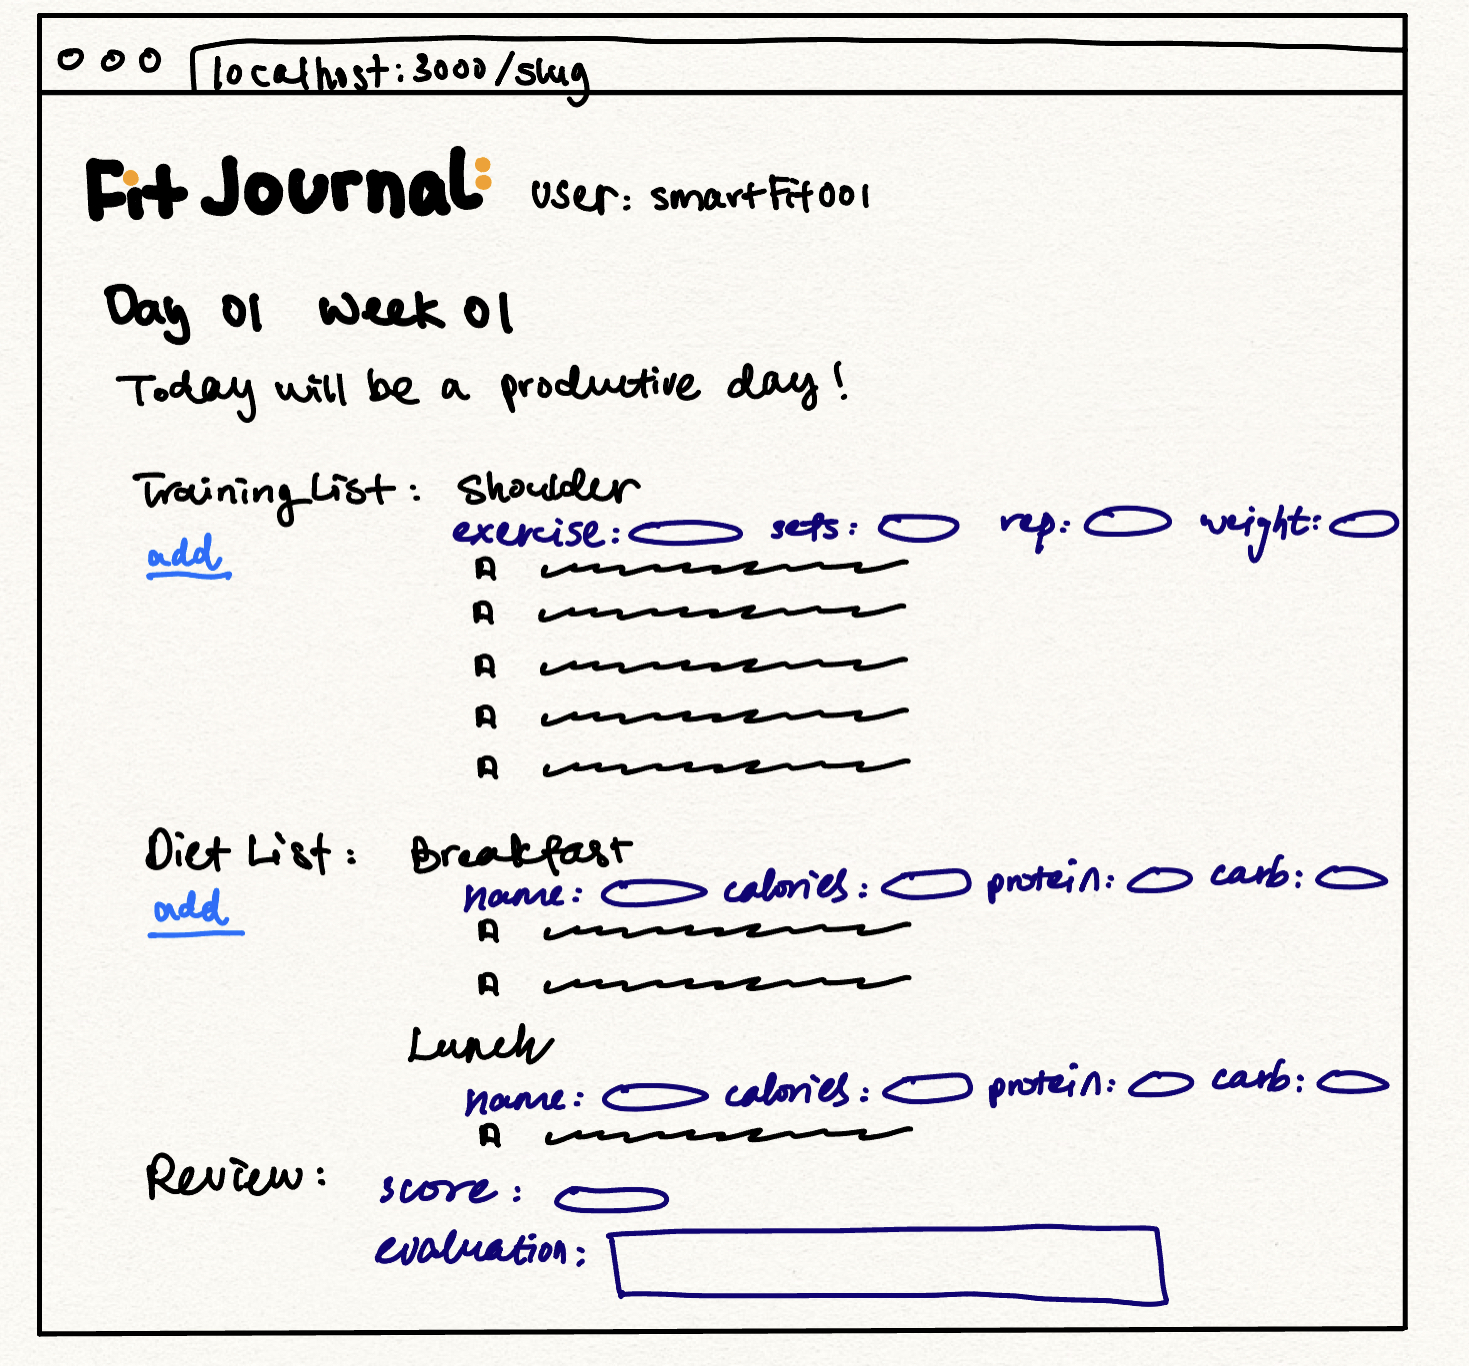 localhost:3000/slug
Fit Journal: user: smartFit001
Day 01 Week 01
Today will be a productive day!
Training List: Shoulder
exercise: sets: rep: weight:
add
Diet List: Breakfast
name: calories: protein: carb:
add
Lunch
name: calories: protein: carb:
Review:
score:
evaluation: